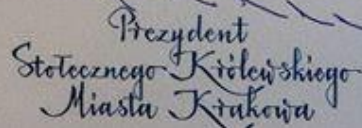 Prezydent
Stołecznego Królewskiego
Miasta Krakowa